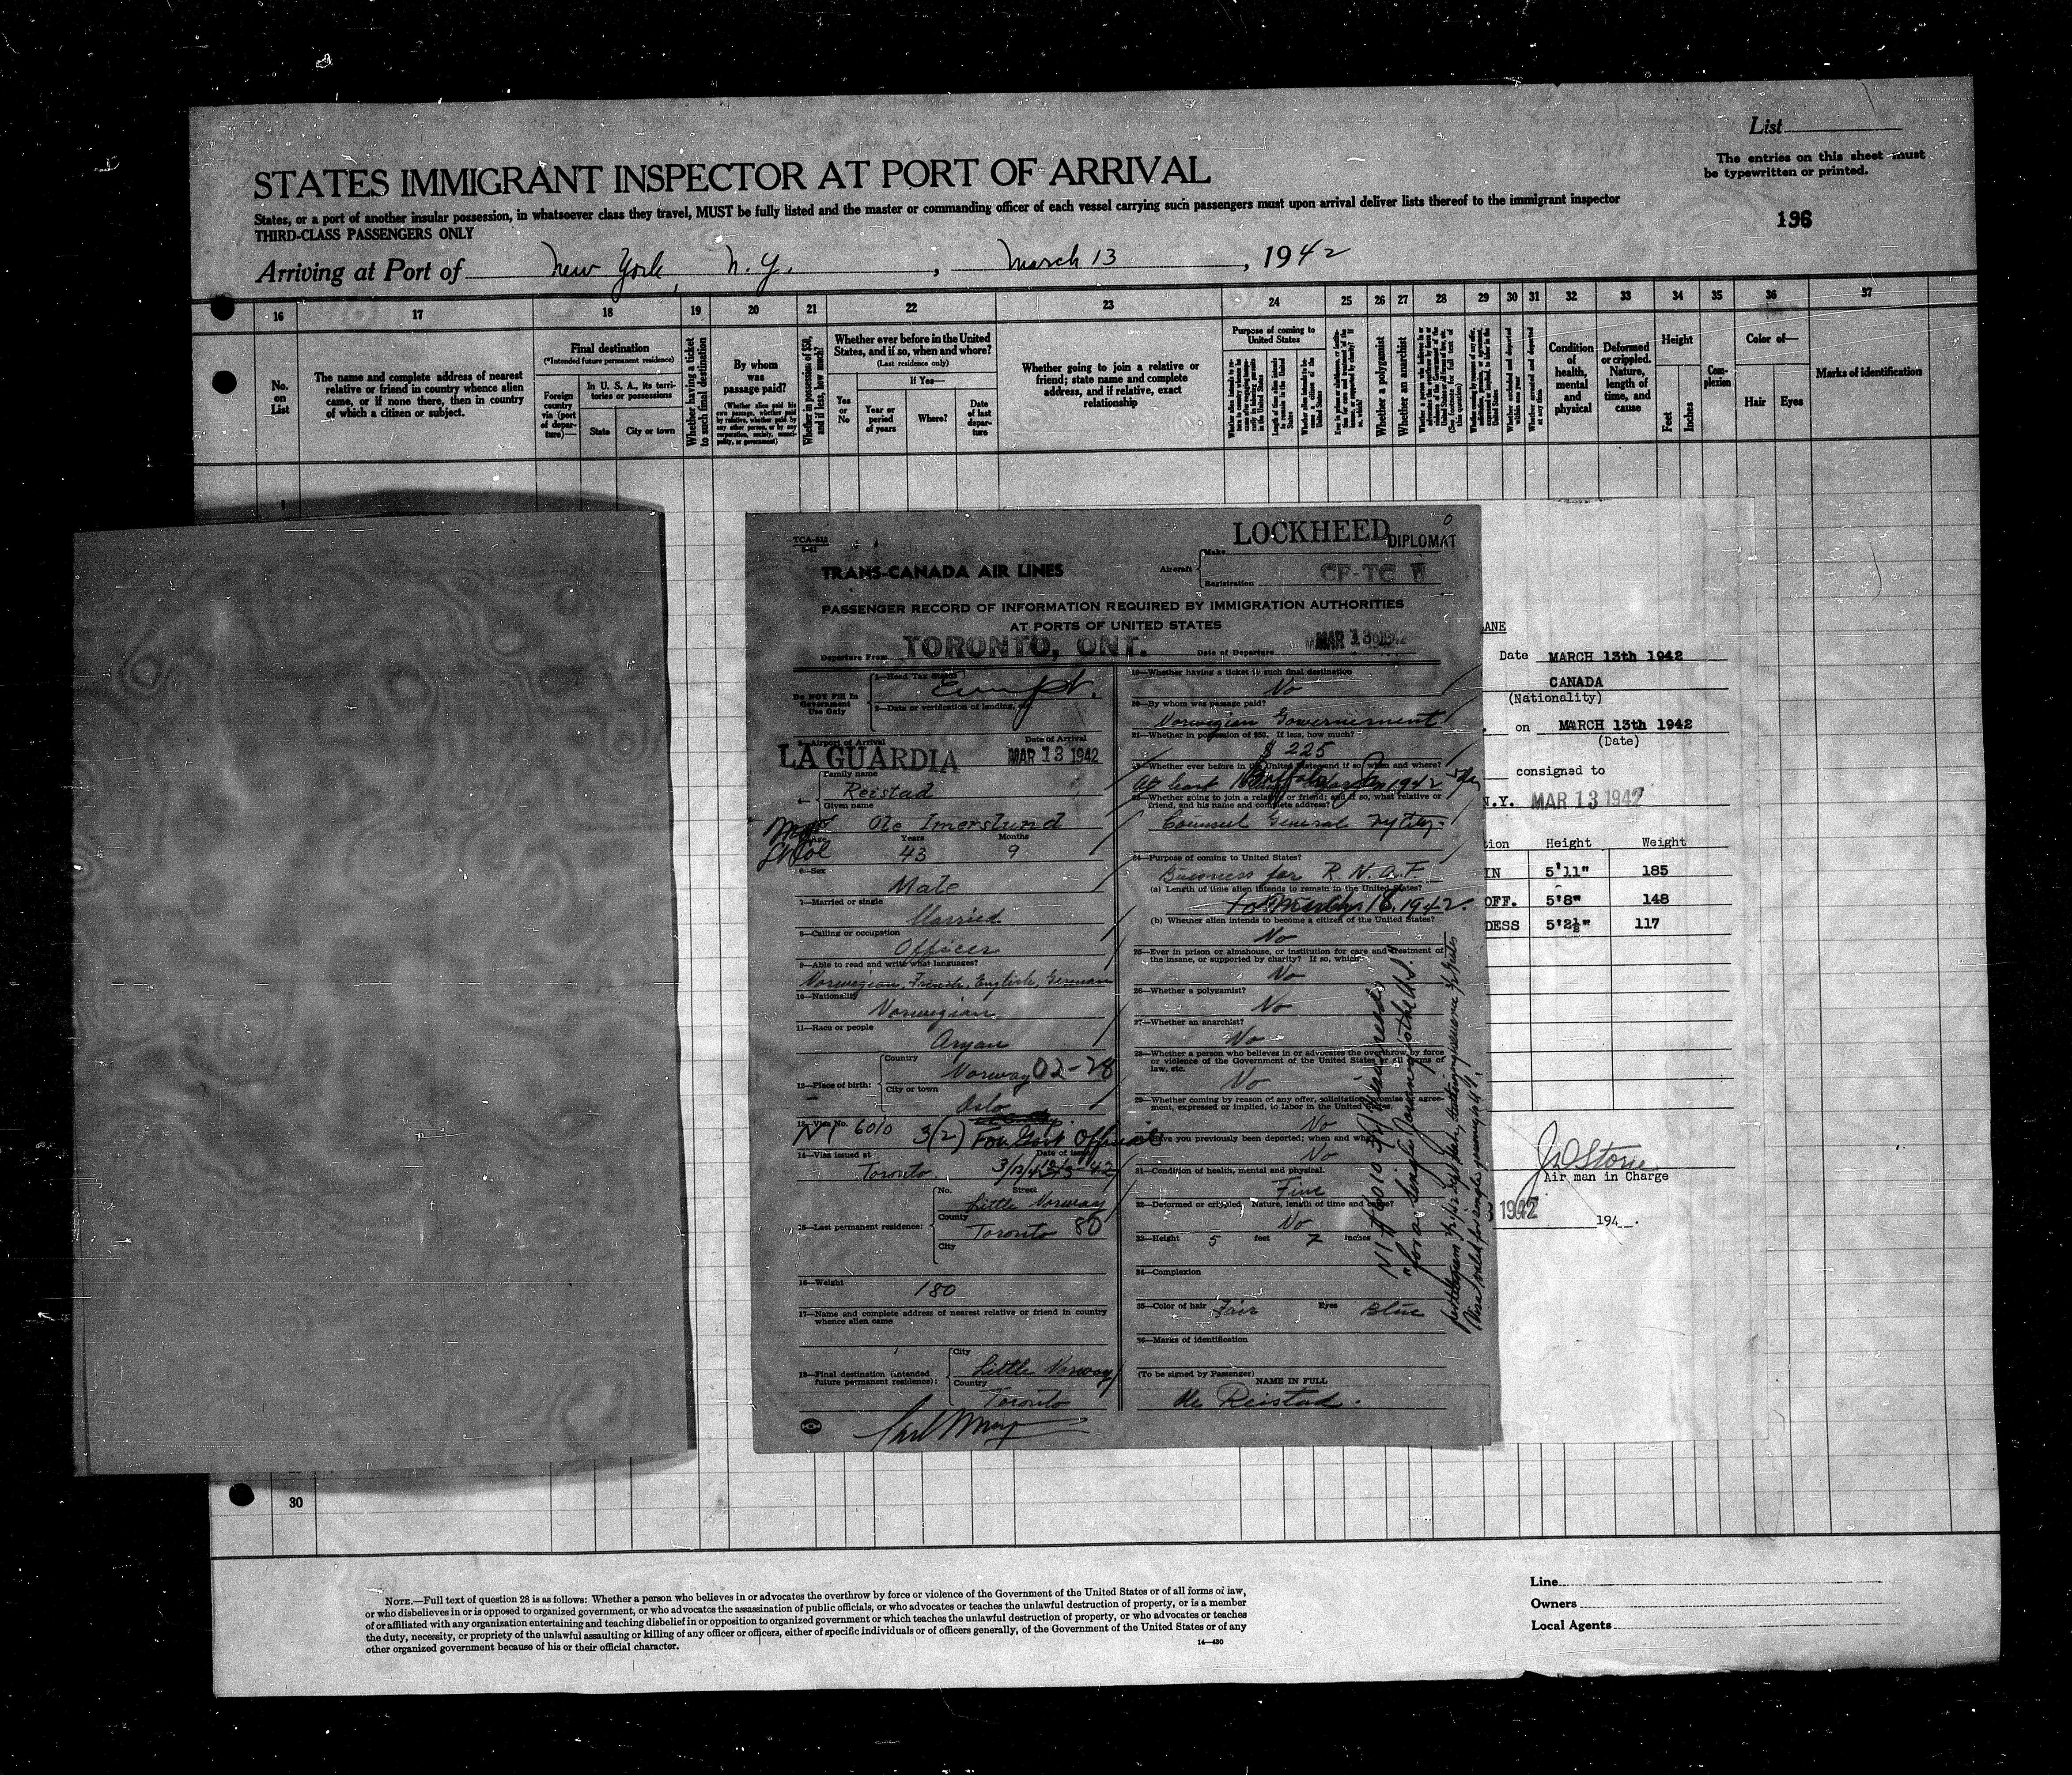 List
The entries on this sheet must
be typewritten or printed.
196
STATES IMMIGRANT INSPECTOR AT PORT OF ARRIVAL
States, or a port of another insular possession, in whatsoever class they travel, MUST be fully listed and the master or commanding officer of each vessel carrying such passengers must upon arrival deliver lists thereof to the immigrant inspector
THIRD-CLASS PASSENGERS ONLY
Arriving at Port of New York, N.Y., March 13, 1942
16 17 18 19 20 21 22 23 24 25 26 27 28 29 30 31 32 33 34 35 36 37
No. on List
The name and complete address of nearest relative or friend in country whence alien came, or if none there, then in country of which a citizen or subject.
Final destination
(*Intended future permanent residence)
Foreign country via (port of departure)—
In U. S. A., its territories or possessions
State
City or town
Whether having a ticket to such final destination
By whom was passage paid?
(Whether alien paid his own passage, whether paid by relative, whether paid by any other person, or by any corporation, society, municipality, or government)
Whether in possession of $50, and if less, how much?
Whether ever before in the United States, and if so, when and where?
(Last residence only)
If Yes—
Yes or No
Year or period of years
Where?
Date of last departure
Whether going to join a relative or friend; state name and complete address, and if relative, exact relationship
Purpose of coming to United States
Whether a polygamist
Whether an anarchist
Condition of health, mental and physical
Deformed or crippled. Nature, length of time, and cause
Height
Feet
Inches
Complexion
Color of—
Hair
Eyes
Marks of identification
TCA-511
LOCKHEED
DIPLOMAT
TRANS-CANADA AIR LINES
Aircraft
Make
Registration
CF-TC
PASSENGER RECORD OF INFORMATION REQUIRED BY IMMIGRATION AUTHORITIES
AT PORTS OF UNITED STATES
Departure From TORONTO, ONT.
Date of Departure MAR 13 1942
Do NOT Fill In
Government
Use Only
1—Head Tax Status
2—Data or verification of landing, etc.
3—Airport of Arrival
Date of Arrival
LA GUARDIA MAR 13 1942
Family name
Reistad
Given name
Ole Imerslund
Years 43 Months 9
6—Sex
Male
7—Married or single
Married
8—Calling or occupation
Officer
9—Able to read and write what languages?
Norwegian, French, English, German
10—Nationality
Norwegian
11—Race or people
Aryan
12—Place of birth:
Country
Norway 02-28
City or town
Oslo
13—Visa No. 6010 3(2) For Govt Official
14—Visa issued at
Date of issue
Toronto
15—Last permanent residence:
No. Street
Little Norway
County
Toronto 80
City
16—Weight
180
17—Name and complete address of nearest relative or friend in country
whence alien came
18—Final destination (intended
future permanent residence):
City
Little Norway
Country
Toronto
19—Whether having a ticket to such final destination
No
20—By whom was passage paid?
Norwegian Governement
21—Whether in possession of $50. If less, how much?
$ 225
22—Whether ever before in the United States and if so, when and where?
23—Whether going to join a relative or friend; and if so, what relative or
friend, and his name and complete address?
Counsul General
24—Purpose of coming to United States?
Business for R.N.A.F.
(a) Length of time alien intends to remain in the United States?
(b) Whether alien intends to become a citizen of the United States?
No
25—Ever in prison or almshouse, or institution for care and treatment of
the insane, or supported by charity? If so, which
No
26—Whether a polygamist?
No
27—Whether an anarchist?
No
28—Whether a person who believes in or advocates the overthrow by force
or violence of the Government of the United States or all forms of
law, etc.
No
29—Whether coming by reason of any offer, solicitation, promise or agreement,
expressed or implied, to labor in the United States.
No
Have you previously been deported; when and why
No
31—Condition of health, mental and physical.
Fine
32—Deformed or crippled. Nature, length of time and cause?
No
33—Height 5 feet 7 inches
34—Complexion
35—Color of hair Fair Eyes Blue
36—Marks of identification
(To be signed by Passenger)
NAME IN FULL
Ole Reistad.
ANE
Date MARCH 13th 1942
CANADA
(Nationality)
on MARCH 13th 1942
(Date)
consigned to
N.Y. MAR 13 1942
tion Height Weight
IN 5'11" 185
OFF. 5'8" 148
DESS 5'2½" 117
Air man in Charge
1942
194 .
30
NOTE.—Full text of question 28 is as follows: Whether a person who believes in or advocates the overthrow by force or violence of the Government of the United States or of all forms of law,
or who disbelieves in or is opposed to organized government, or who advocates the assassination of public officials, or who advocates or teaches the unlawful destruction of property, or is a member
of or affiliated with any organization entertaining and teaching disbelief in or opposition to organized government or which teaches the unlawful destruction of property, or who advocates or teaches
the duty, necessity, or propriety of the unlawful assaulting or killing of any officer or officers, either of specific individuals or of officers generally, of the Government of the United States or of any
other organized government because of his or their official character.
14—430
Line
Owners
Local Agents